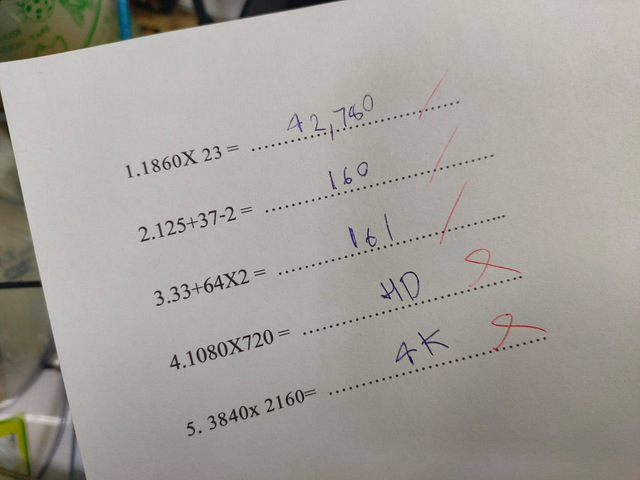 1.1860X 23 = 42,780
2.125+37-2 = 160
3.33+64X2 = 161
4.1080X720 = HD
5. 3840x 2160= 4K